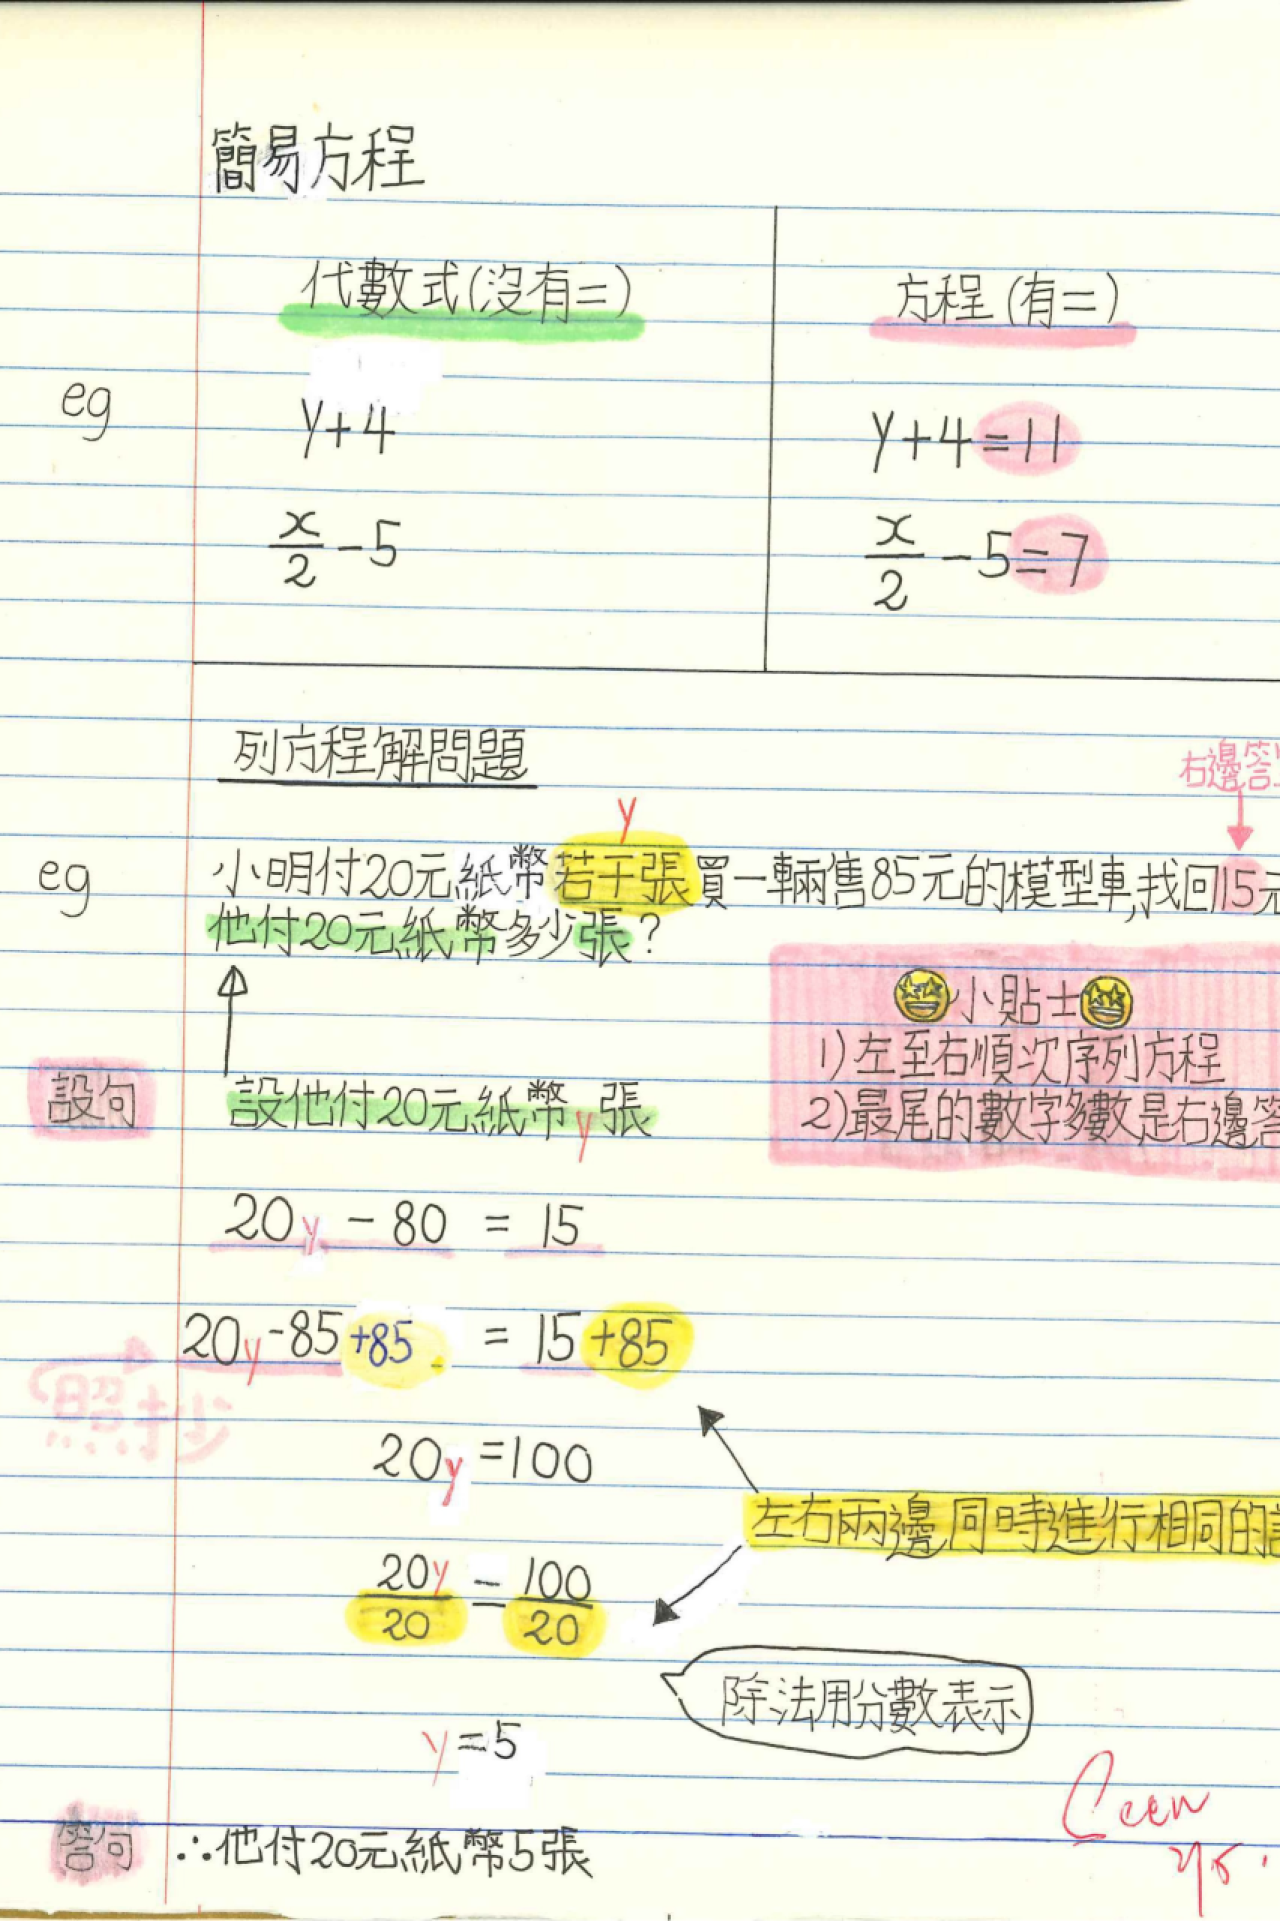 簡易方程
代數式(沒有=)
方程(有=)
eg
y+4
y+4=11
x/2 -5
x/2 -5=7
列方程解問題
右邊答
y
eg
小明付20元紙幣若干張買一輛售85元的模型車,找回15元
他付20元紙幣多少張?
小貼士
1)左至右順次序列方程
2)最尾的數字多數是右邊答
設句
設他付20元紙幣y張
20y - 80 = 15
20y -85 +85 = 15 +85
照抄
20y =100
左右兩邊同時進行相同的
20y/20 = 100/20
除法用分數表示
y=5
答句
∴他付20元紙幣5張